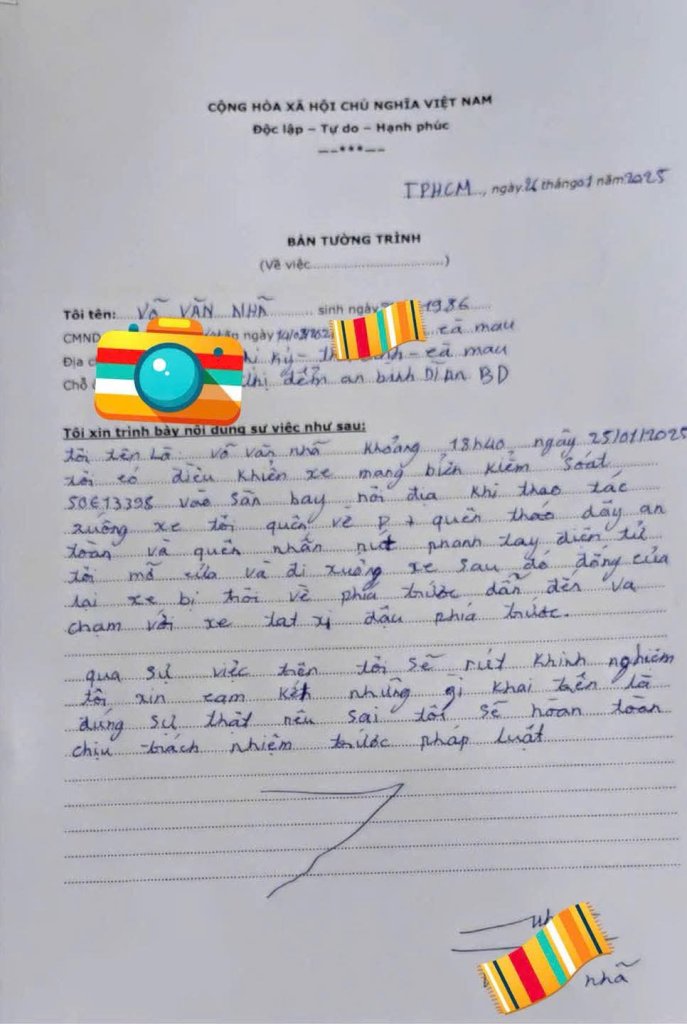 CỘNG HÒA XÃ HỘI CHỦ NGHĨA VIỆT NAM
Độc lập – Tự do – Hạnh phúc
––***––
TPHCM, ngày 26 tháng 01 năm 2025
BẢN TƯỜNG TRÌNH
(Về việc..............................)
Tôi tên: VÕ VĂN NHÃ sinh ngày 1986
CMND ngày cà mau
Địa cà mau
Chỗ đểm an bình Dĩ An BD
Tôi xin trình bày nội dung sự việc như sau:
tôi tên Là võ văn nhã khoảng 18h40 ngày 25/01/2025
tôi có điều khiển xe mang biển kiểm soát
50E13398 vào sân bay nội địa khi thao tác
xuống xe tôi quên về P + quên tháo dây an
toàn và quên nhấn nút phanh tay điện tử
tôi mở cửa và đi xuống xe sau đó đóng cửa
lại xe bị trôi về phía trước dẫn đến va
chạm với xe tat xi đậu phía trước.
qua sự việc trên tôi sẽ rút khinh nghiêm
tôi xin cam kết những gì khai trên là
đúng sự thật nếu sai tôi sẽ hoan toan
chịu trách nhiệm trước pháp luật
nhã